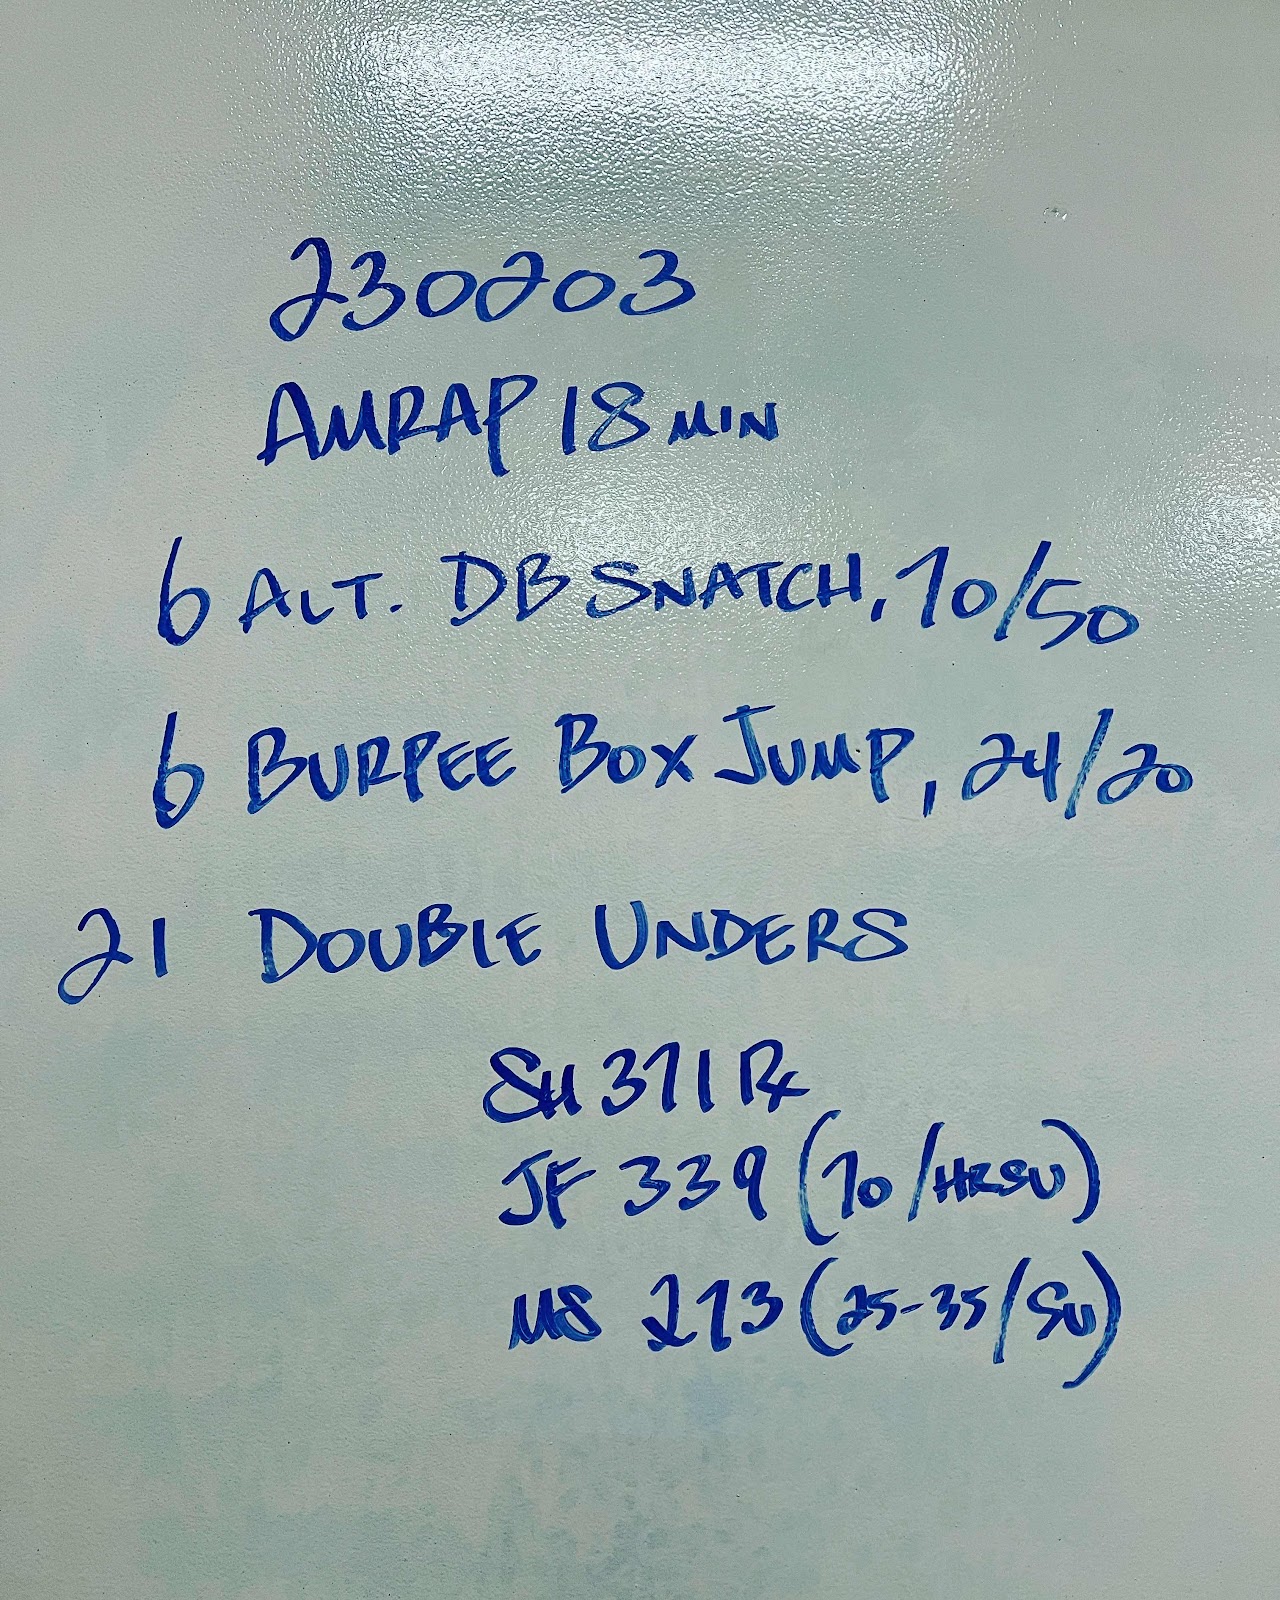 230203
AMRAP 18 MIN
6 ALT. DB SNATCH, 70/50
6 BURPEE BOX JUMP, 24/20
21 DOUBLE UNDERS
SH 371 Rx
JF 339 (70/HRSU)
MS 273 (25-35/SU)